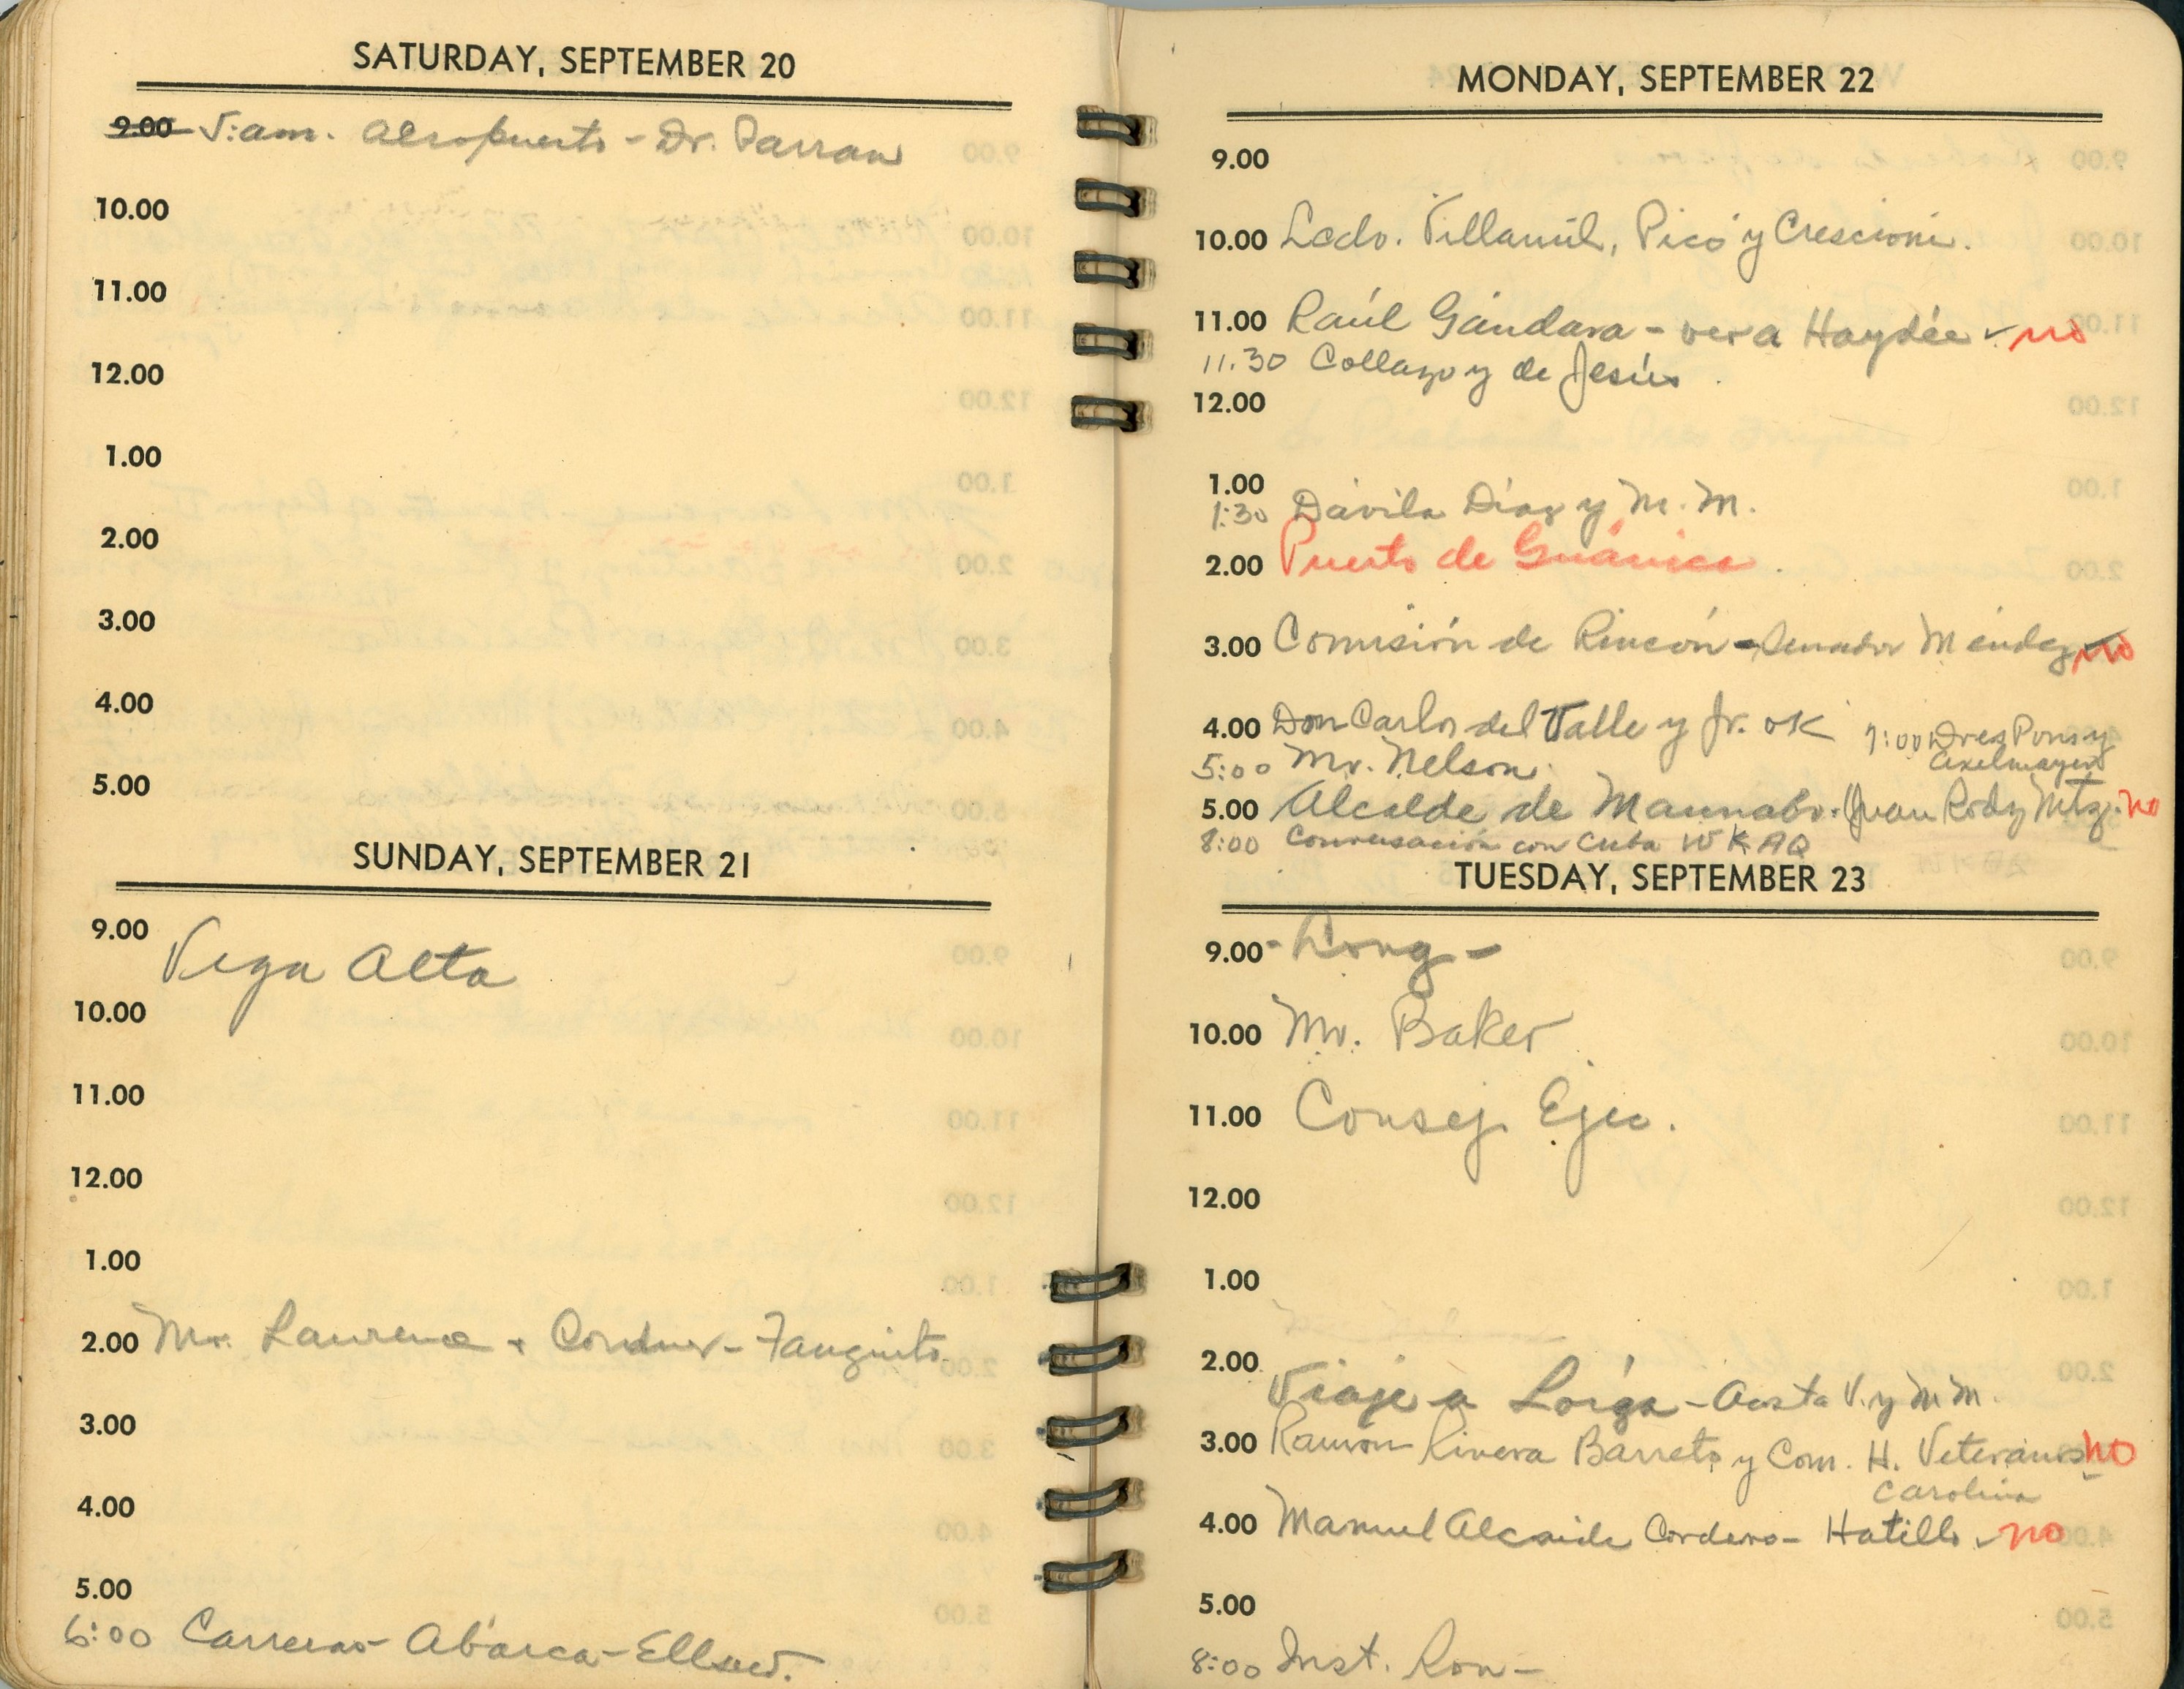 SATURDAY, SEPTEMBER 20
9.00 5:am. Aeropuerto - Dr. Parran
10.00
11.00
12.00
1.00
2.00
3.00
4.00
5.00
SUNDAY, SEPTEMBER 21
9.00
Vega Alta
10.00
11.00
12.00
1.00
2.00 Mr. Laurence + Cordner - Fanguito
3.00
4.00
5.00
6:00 Carreras - Abarca - Ellsw.
MONDAY, SEPTEMBER 22
9.00
10.00 Lcdo. Villamil, Picó y Crescioni.
11.00 Raúl Gándara - ver a Haydée no
11:30 Collazo y de Jesús
12.00
1.00
1:30 Dávila Díaz y M. M.
2.00 Puerto de Guánica.
3.00 Comisión de Rincón - Senador Méndez no
4.00 Don Carlos del Valle y Jr. OK 7:00 Dres Pons y
5:00 Mr. Nelson. Axelmayer
5.00 Alcalde de Maunabo. (Juan Rodz Mtz. no
8:00 Conversación con Cuba WKAQ
TUESDAY, SEPTEMBER 23
9.00 - Long -
10.00 Mr. Baker
11.00 Consej. Ejec.
12.00
1.00
2.00
Viaje a Loíza - Acosta V. y M M.
3.00 Ramón Rivera Barreto y Com. H. Veteranos no
Carolina
4.00 Manuel Alcaide Cordero - Hatillo no
5.00
8:00 Inst. Ron -